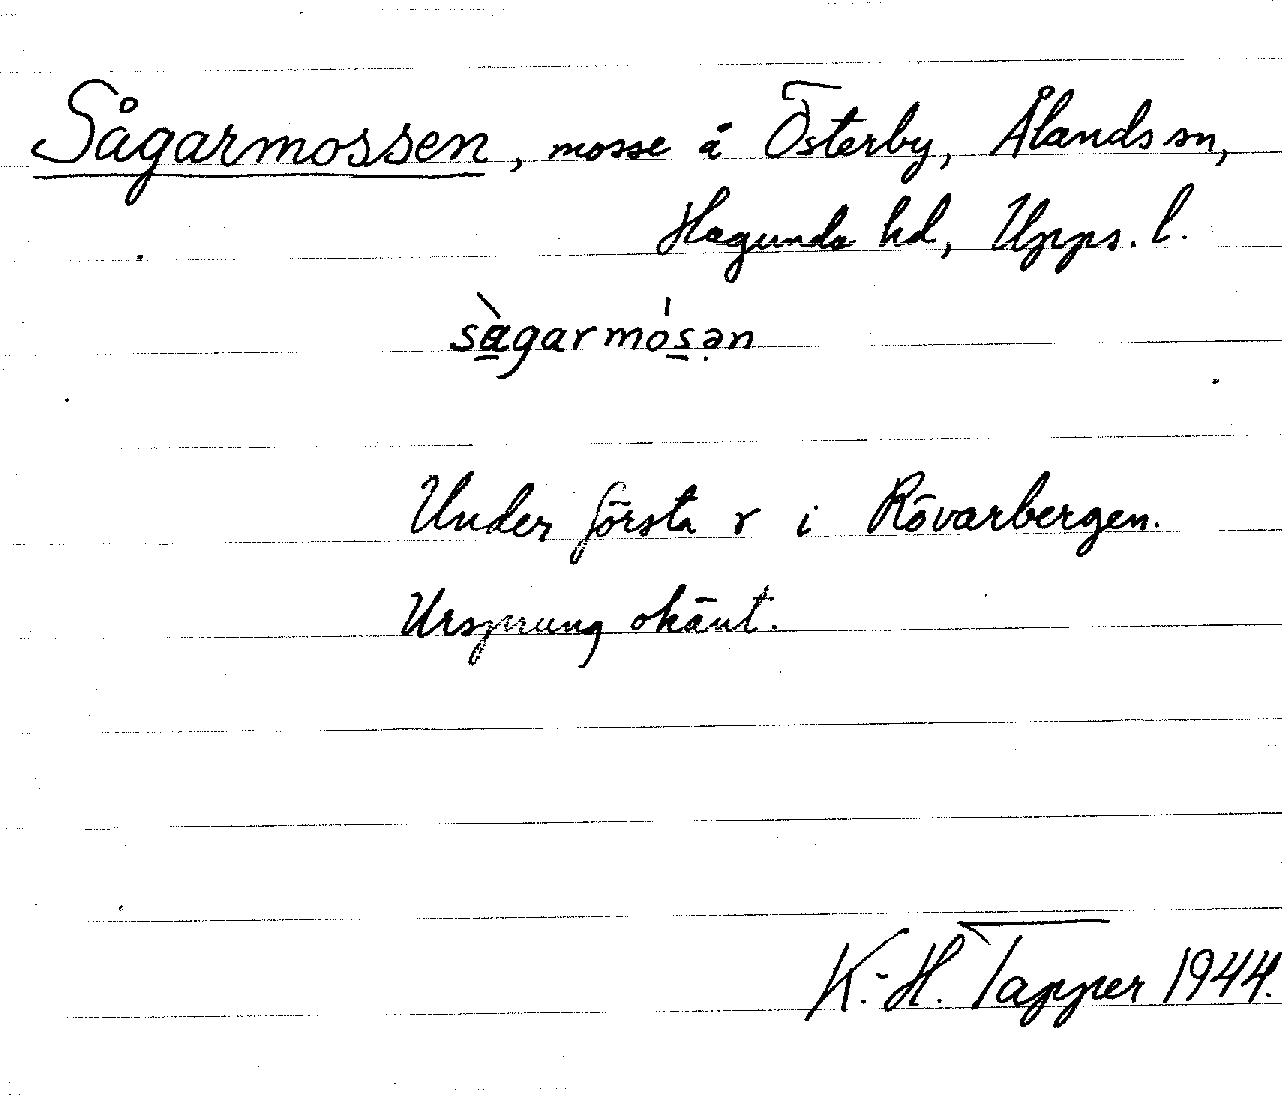 Sågarmossen, mosse å Österby, Ålands sn,
Hagunda hd, Upps. l.
sàgarmósən
Under första r i Rövarbergen.
Ursprung okänt.
K.-H. Tapper 1944.